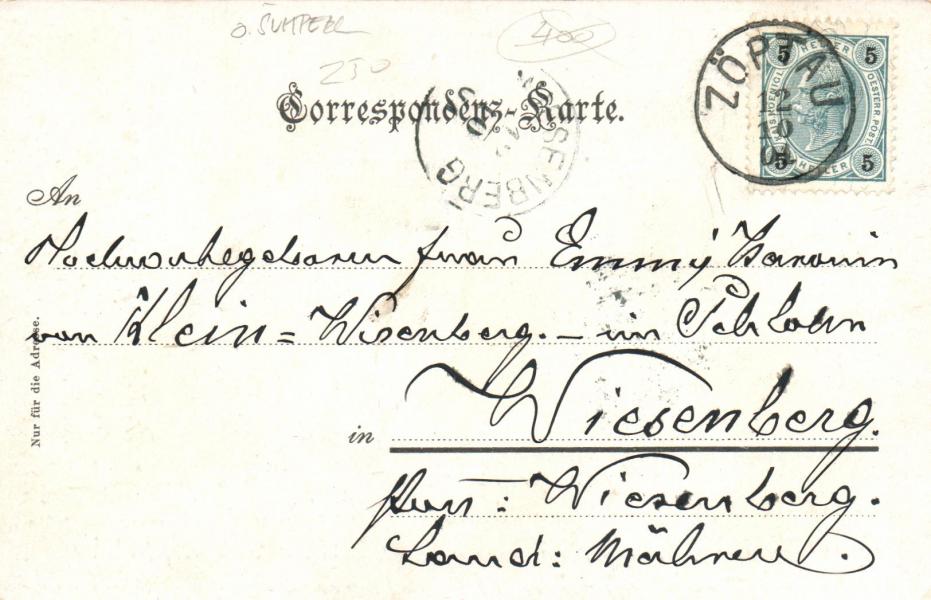 O. ŠUMPERK
400
250
Correspondenz-Karte.
ZÖPTAU
12
10
01
WIESENBERG
5 HELLER 5
KAIS. KOENIGL. OESTERR. POST.
5 HELLER 5
An
Hochwohlgeboren Frau Emmy Baronin
von Klein=Wisenberg. – im Schloß
in Wiesenberg.
Post: Wiesenberg.
Land: Mähren.
Nur für die Adresse.